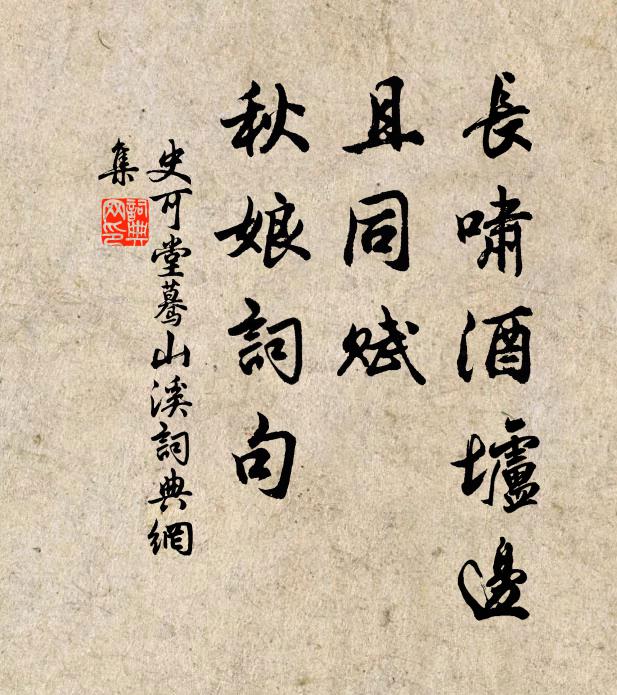 長嘯酒壚邊
且同賦
秋娘詞句
史可堂驀山溪詞典網
集
詞典
网印